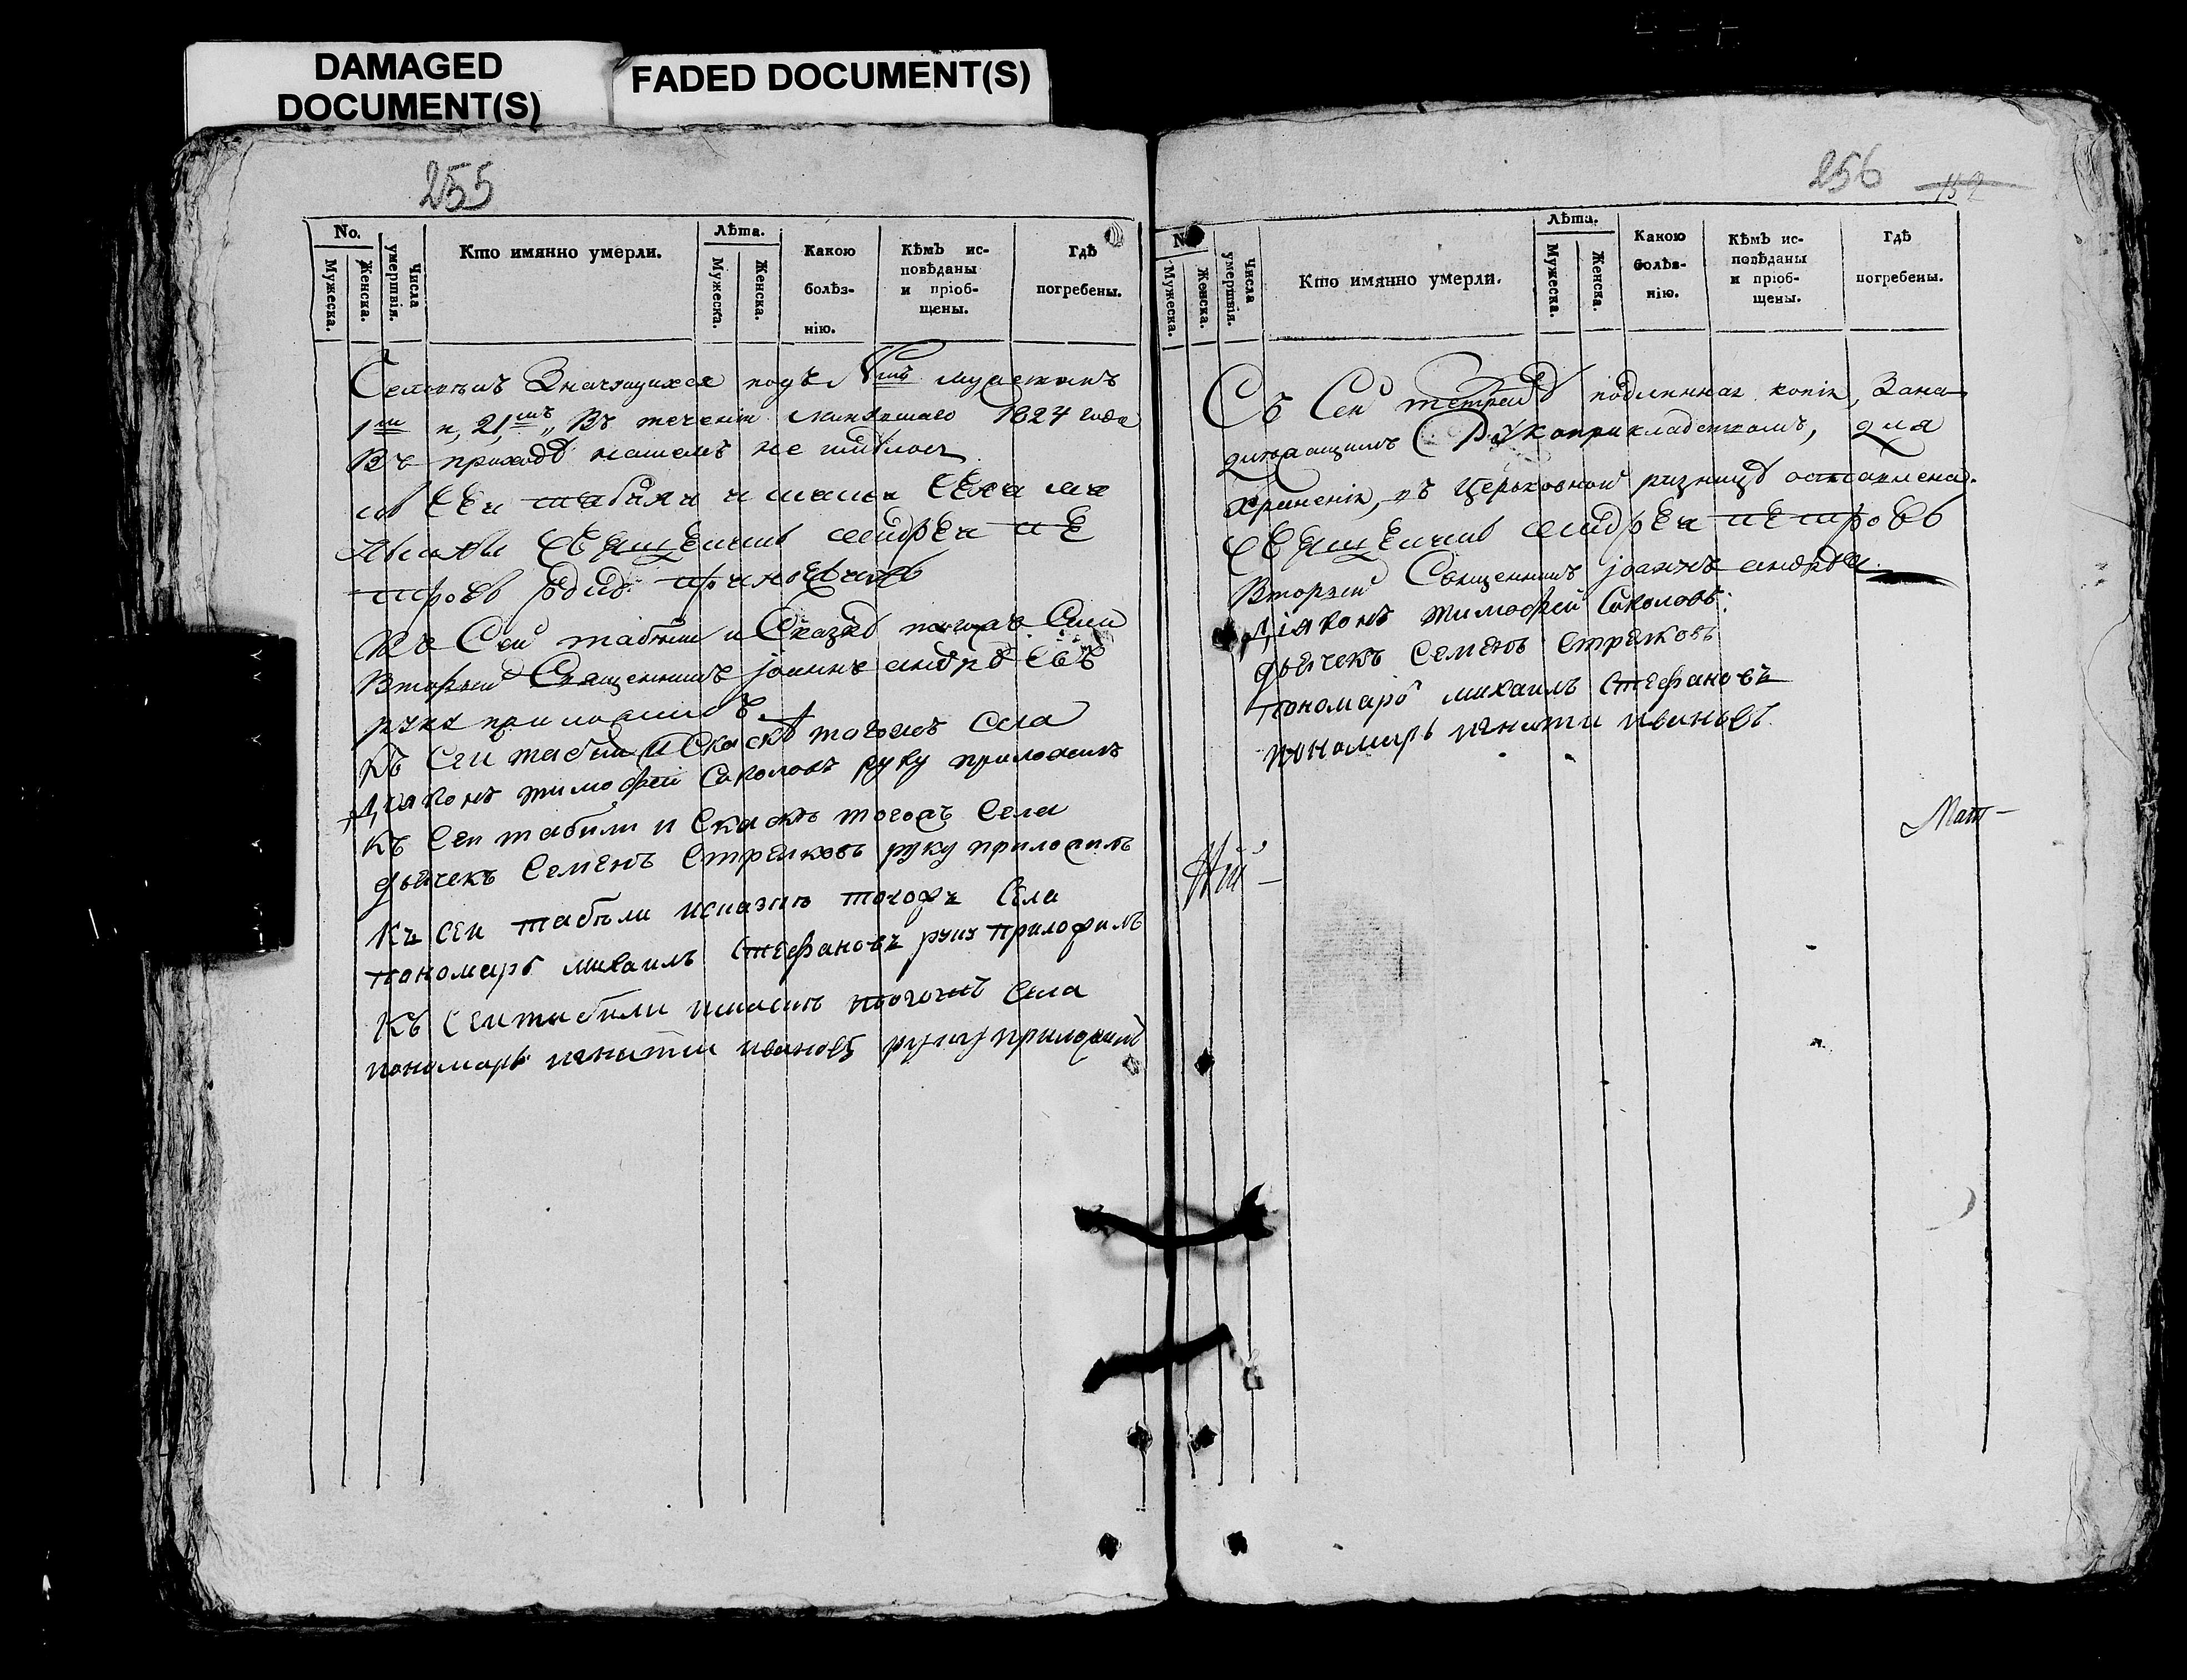 DAMAGED
DOCUMENT(S)
FADED DOCUMENT(S)
255
No.
Мужеска.
Женска.
Числа
умертвія.
Кто имянно умерли.
Лѣта.
Мужеска.
Женска.
Какою
болѣз-
нію.
Кѣмъ ис-
повѣданы
и пріоб-
щены.
Гдѣ
погребены.
значащихся подъ
1м и, 21,мъ „ Въ течени 1824 года
Въ приходѣ нашемъ не имѣлось
Къ Сей табели и Сказкѣ тогожъ Села
Вторый Священникъ Іоаннъ андрѣевъ
руку приложилъ
Къ Сеи табели и Скаскѣ тогожъ Села
Діаконъ тимофей Соколовъ руку приложилъ
Къ Сеи табили и Скаскѣ тогожъ Села
дьячекъ Семенъ Стрелковъ руку приложилъ
Къ сеи табѣли тогожъ Села
пономарь михаилъ Стефановъ руку приложилъ
Къ Сеи табили тогожъ Села
пономарь игнатии ивановъ руку приложилъ
256
132
Мужеска.
Женска.
Числа
умертвія.
Кто имянно умерли.
Лѣта.
Мужеска.
Женска.
Какою
болѣз-
нію.
Кѣмъ ис-
повѣданы
и пріоб-
щены.
Гдѣ
погребены.
Съ Сей тетради подлинная копія, Зана
длежащимъ Рукоприкладствомъ, для
храненія, въ Церьковной ризницѣ оставлена.
андрЕи пЕтровъ
Вторый Священникъ Іоаннъ андрѣи
Діаконъ тимофей Соколовъ:
дьячекъ Семенъ Стрелковъ
пономарь михаилъ Стефановъ
пономарь игнати ивановъ.
Мат-
Нїй-